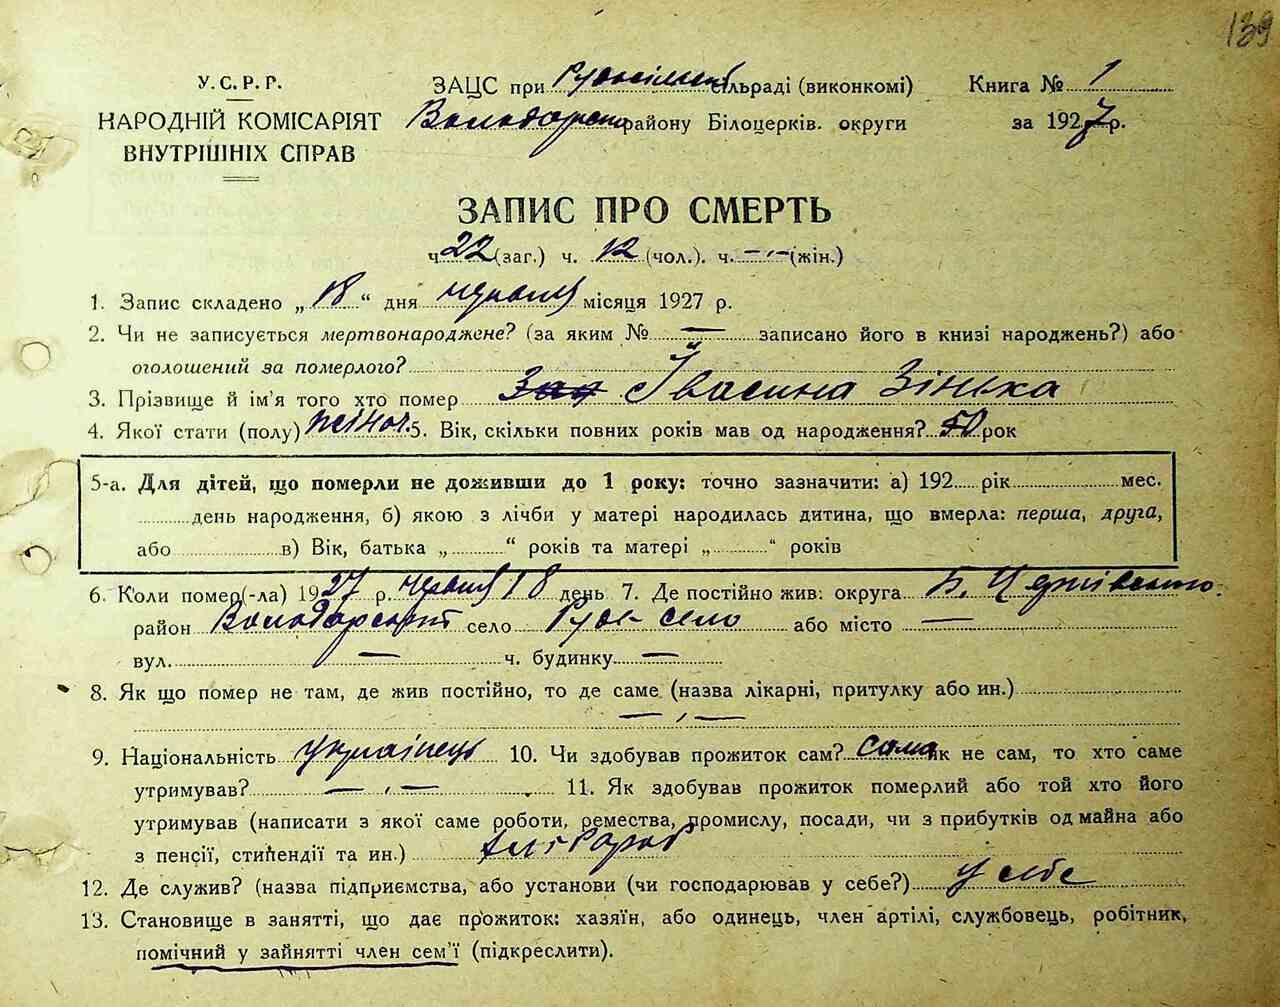 139
У.С.Р.Р.
НАРОДНІЙ КОМІСАРІЯТ
ВНУТРІШНІХ СПРАВ
ЗАЦС при Рудосільській сільраді (виконкомі)
Володарського району Білоцерків. округи
Книга № 1
за 1927 р.
ЗАПИС ПРО СМЕРТЬ
ч. 22 (заг.) ч. 12 (чол.). ч. — „ — (жін.)
1. Запис складено „ 18 “ дня червня місяця 1927 р.
2. Чи не записується мертвонароджене? (за яким № — записано його в книзі народжень?) або
оголошений за померлого?
3. Прізвище й ім'я того хто помер Івасина Зінька
4. Якої стати (полу) жіноч. 5. Вік, скільки повних років мав од народження? 50 рок
5-а. Для дітей, що померли не доживши до 1 року: точно зазначити: а) 192 рік мес.
день народження, б) якою з лічби у матері народилась дитина, що вмерла: перша, друга,
або в) Вік, батька „ “ років та матері „ “ років
6. Коли помер(-ла) 1927 р. червня 18 день 7. Де постійно жив: округа Б. Церківського
район Володарський село Руде-село або місто —
вул. — ч. будинку —
8. Як що помер не там, де жив постійно, то де саме (назва лікарні, притулку або ин.)
— „ —
9. Національність українець 10. Чи здобував прожиток сам? сама як не сам, то хто саме
утримував? — „ — 11. Як здобував прожиток померлий або той хто його
утримував (написати з якої саме роботи, ремества, промислу, посади, чи з прибутків од майна або
з пенсії, стипендії та ин.)
12. Де служив? (назва підприємства, або установи (чи господарював у себе?) у себе
13. Становище в занятті, що дає прожиток: хазяїн, або одинець, член артілі, службовець, робітник,
помічний у зайнятті член сем'ї (підкреслити).